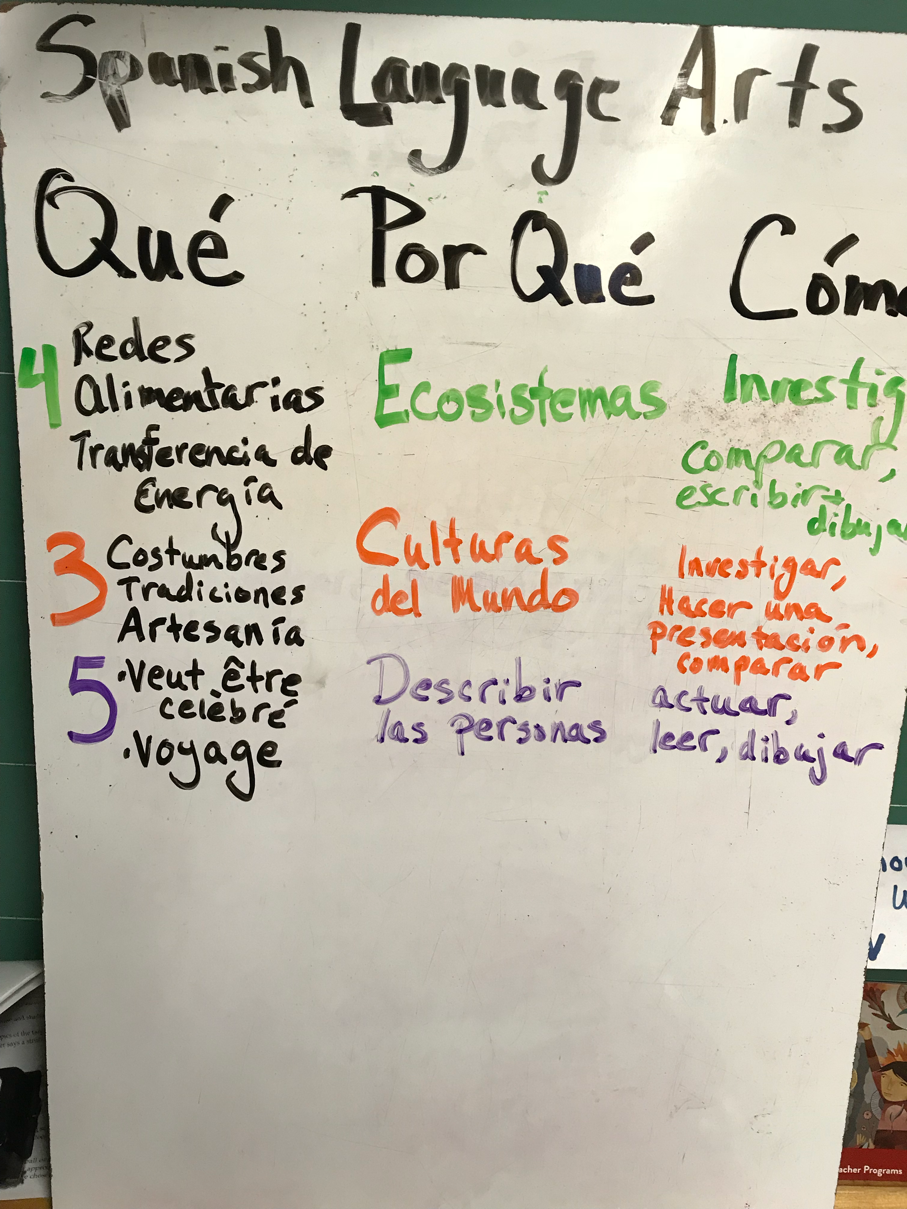 Spanish Language Arts
Qué Por Qué Cóm
4 Redes
Alimentarias
Transferencia de
Energía
Ecosistemas
Investig
comparar,
escribir+
dibujar
3 Costumbres
y
Tradiciones
Artesanía
Culturas
del Mundo
Investigar,
Hacer una
presentación,
comparar
5 •Veut être
célèbré
•Voyage
Describir
las personas
actuar,
leer, dibujar
acher Programs